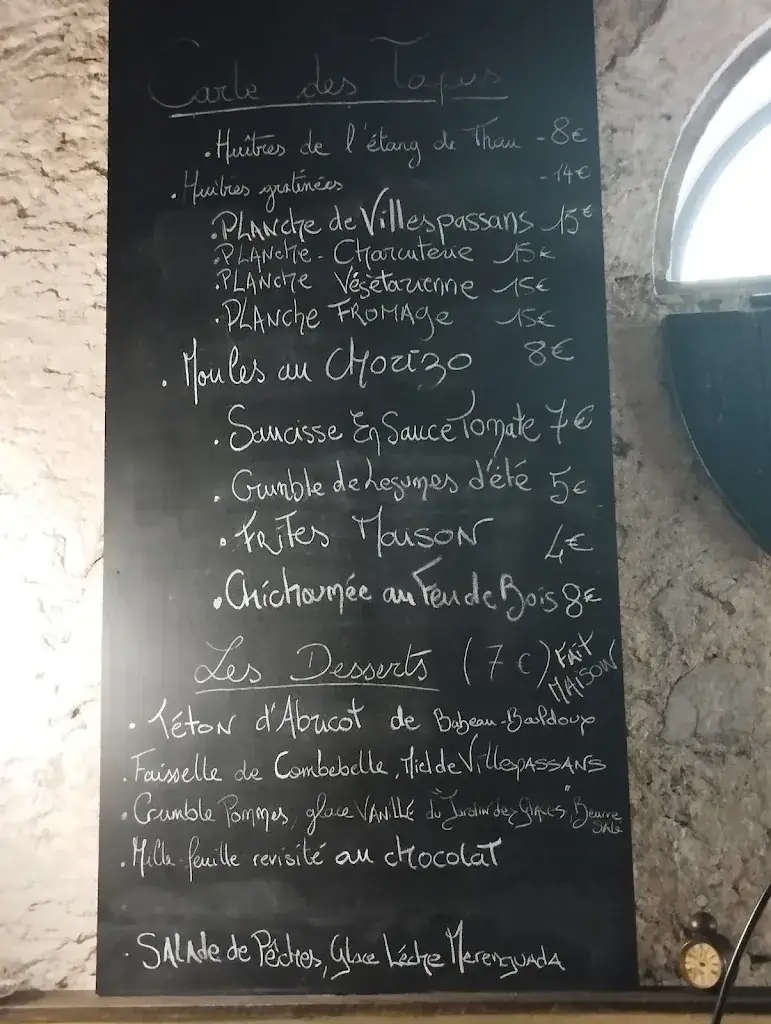 Carte des Tapas
. Huîtres de l'étang de Thau - 8€
. Huîtres gratinées - 14€
. PLANche de Villespassans 15€
. PLANche - Charcuterie 15€
. PLANche Végétarienne 15€
. PLANche FROMAge 15€
. Moules au Chorizo 8€
. Saucisse En Sauce Tomate 7€
. Crumble de Legumes d'été 5€
. FRITes MAISON 4€
. Chichoumée au Feu de Bois 8€
Les Desserts (7€) FAIT MAISON
. Téton d'Abricot de Babeau-Bouldoux
. Faisselle de Combebelle, Miel de VillesPASSANS
. Crumble Pommes, glace VANILLE du "Jardin des Glaces", Beurre Salé
. Mille feuille revisité au chocolat
. SALAde de Pêches, Glace Lèche Merenguada